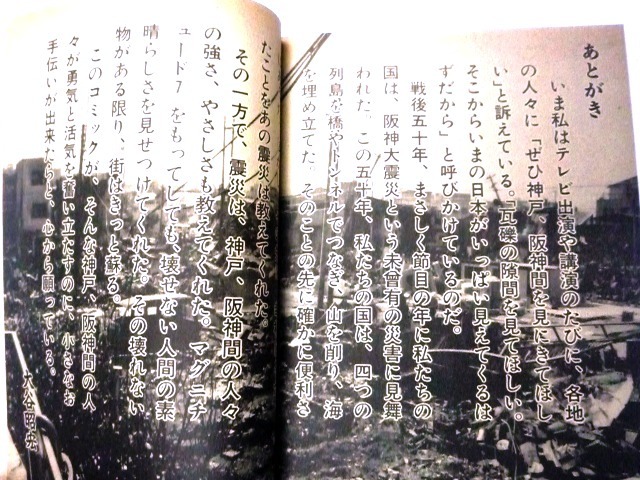 あとがき
いま私はテレビ出演や講演のたびに、各地
の人々に「ぜひ神戸、阪神間を見にきてほし
い」と訴えている。「瓦礫の隙間を見てほしい。
そこからいまの日本がいっぱい見えてくるは
ずだから」と呼びかけているのだ。
戦後五十年、まさしく節目の年に私たちの
国は、阪神大震災という未曾有の災害に見舞
われた。この五十年、私たちの国は、四つの
列島を橋やトンネルでつなぎ、山を削り、海
を埋め立てた。そのことの先に確かに便利さ
たことをあの震災は教えてくれた。
その一方で、震災は、神戸、阪神間の人々
の強さ、やさしさも教えてくれた。マグニチ
ュード7をもってしても、壊せない人間の素
晴らしさを見せつけてくれた。その壊れない
物がある限り、街はきっと蘇る。
このコミックが、そんな神戸、阪神間の人
々が勇気と活気を奮い立たすのに、小さなお
手伝いが出来たらと、心から願っている。
大谷昭宏